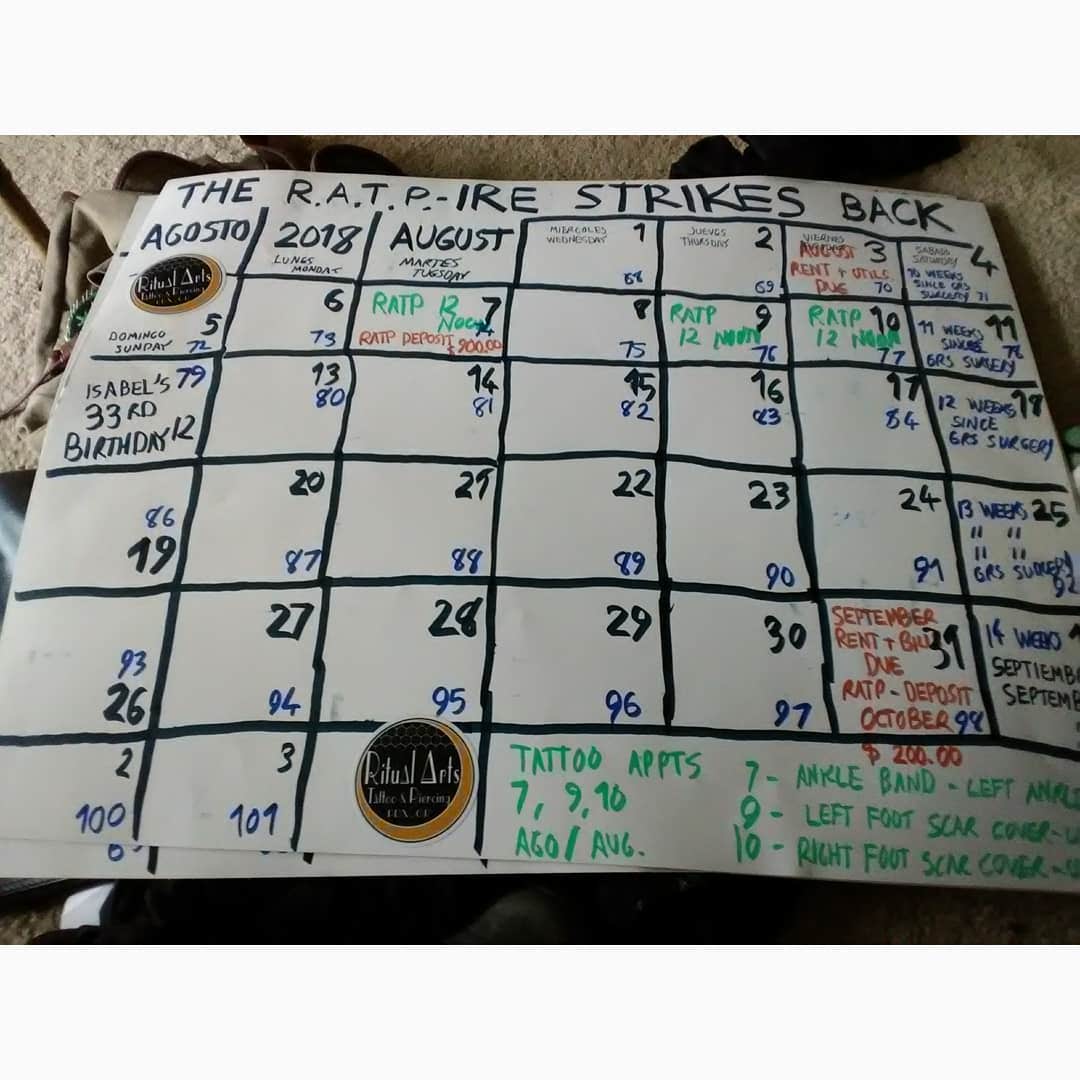 THE R.A.T.P.-IRE STRIKES BACK
AGOSTO 2018 AUGUST
LUNES
MONDAY
MARTES
TUESDAY
MIERCOLES 1
WEDNESDAY
68
JUEVES 2
THURSDAY
69
VIERNES 3
AUGUST
RENT + UTILS
DUE 70
SABADO 4
SATURDAY
10 WEEKS
SINCE GRS
SURGERY 71
Ritual Arts
Tattoo & Piercing
PDX, OR
5
DOMINGO
SUNDAY 72
6
73
RATP 12 7
NOON 74
RATP DEPOSIT
8
75
RATP 9
12 NOON
76
RATP 10
12 NOON
77
11 WEEKS 11
SINCE 78
GRS SURGERY
ISABEL'S 79
33RD
BIRTHDAY 12
13
80
14
81
15
82
16
83
17
84
12 WEEKS 18
SINCE
GRS SURGERY
86
19
20
87
21
88
22
89
23
90
24
91
13 WEEKS 25
" "
" "
GRS SURGERY
92
93
26
27
94
28
95
29
96
30
97
SEPTEMBER
RENT + BILL 31
DUE
RATP - DEPOSIT
OCTOBER 98
$ 200.00
14 WEEKS 1
SEPTIEMB
SEPTEMB
2
100
3
101
Ritual Arts
Tattoo & Piercing
PDX, OR
TATTOO APPTS
7, 9, 10
AGO / AUG.
7 - ANKLE BAND - LEFT ANKL
9 - LEFT FOOT SCAR COVER-U
10 - RIGHT FOOT SCAR COVER-U